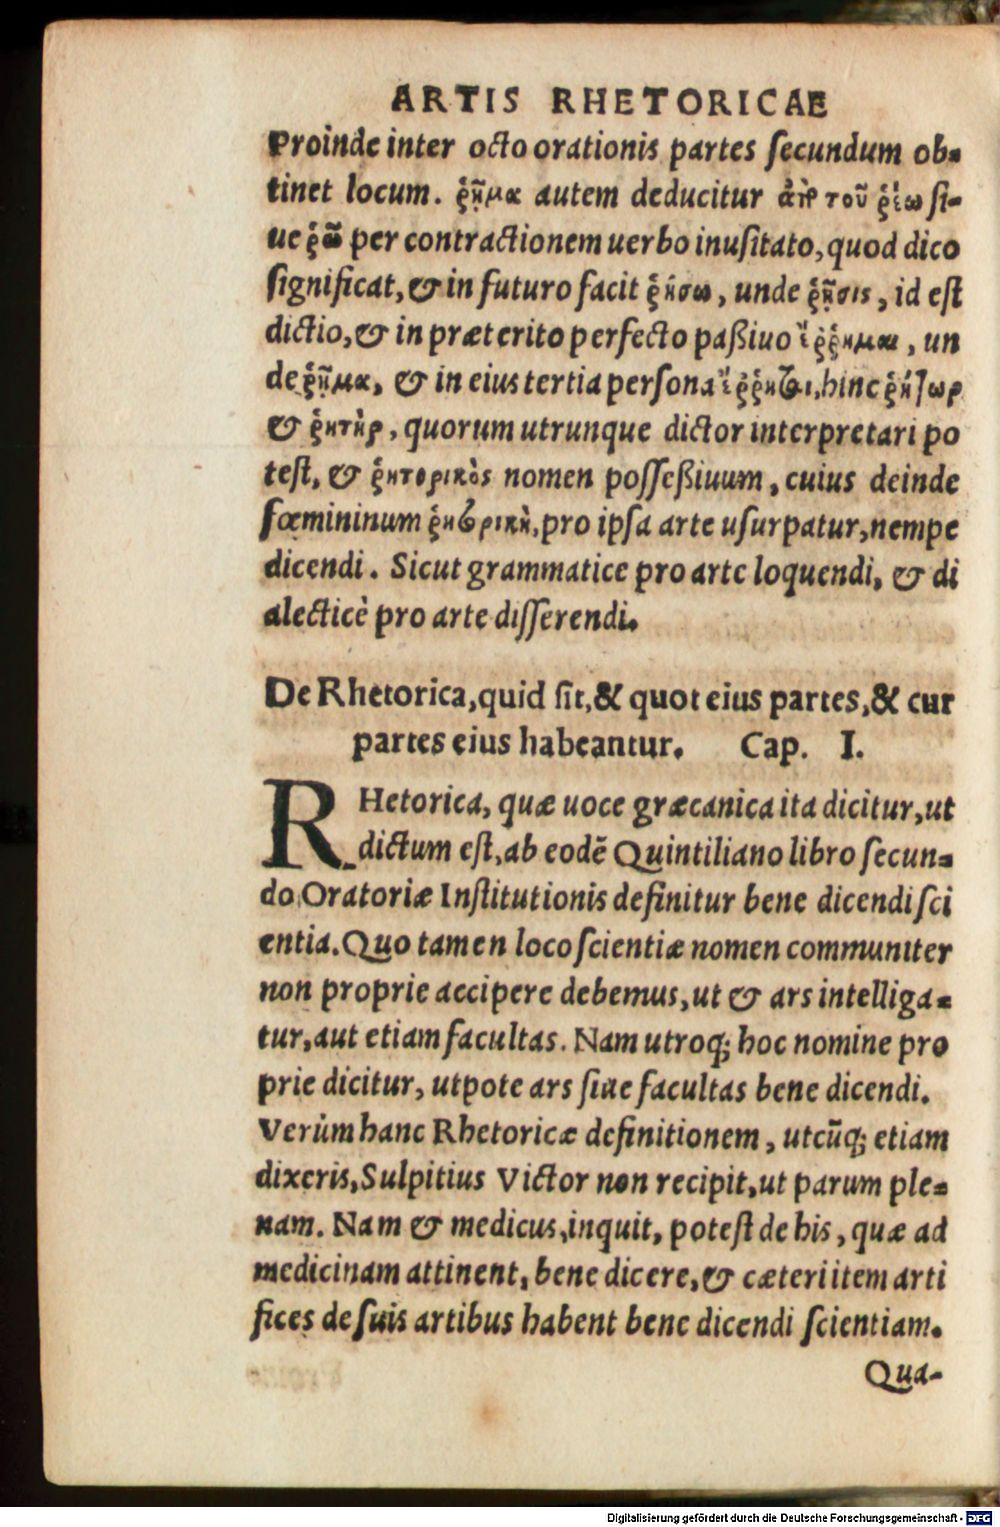 ARTIS RHETORICAE
Proinde inter octo orationis partes ſecundum ob-
tinet locum. ῥῆμα autem deducitur ἀπὸ τοῦ ῥέω ſi-
ue ῥῶ per contractionem uerbo inuſitato, quod dico
ſignificat, & in futuro facit ῥήσω, unde ῥῆσις, id eſt
dictio, & in præterito perfecto paßiuo ἔῤῥημαι, un
de ῥῆμα, & in eius tertia perſona ἔῤῥηται, hinc ῥήτωρ
& ῥητὴρ, quorum utrunque dictor interpretari po
teſt, & ῥητορικὸς nomen poſſeßiuum, cuius deinde
fœmininum ῥητορικὴ, pro ipſa arte uſurpatur, nempe
dicendi. Sicut grammatice pro arte loquendi, & di
alecticè pro arte diſſerendi.
De Rhetorica, quid ſit, & quot eius partes, & cur
partes eius habeantur. Cap. I.
RHetorica, quæ uoce græcanica ita dicitur, ut
dictum eſt, ab eodē Quintiliano libro ſecun-
do Oratoriæ Inſtitutionis definitur bene dicendi ſci
entia. Quo tamen loco ſcientiæ nomen communiter
non proprie accipere debemus, ut & ars intelliga-
tur, aut etiam facultas. Nam utroq; hoc nomine pro
prie dicitur, utpote ars ſiue facultas bene dicendi.
Verùm hanc Rhetoricæ definitionem, utcūq; etiam
dixeris, Sulpitius Victor non recipit, ut parum ple-
nam. Nam & medicus, inquit, poteſt de his, quæ ad
medicinam attinent, bene dicere, & cæteri item arti
fices de ſuis artibus habent bene dicendi ſcientiam.
Qua-
Digitalisierung gefördert durch die Deutsche Forschungsgemeinschaft - DFG